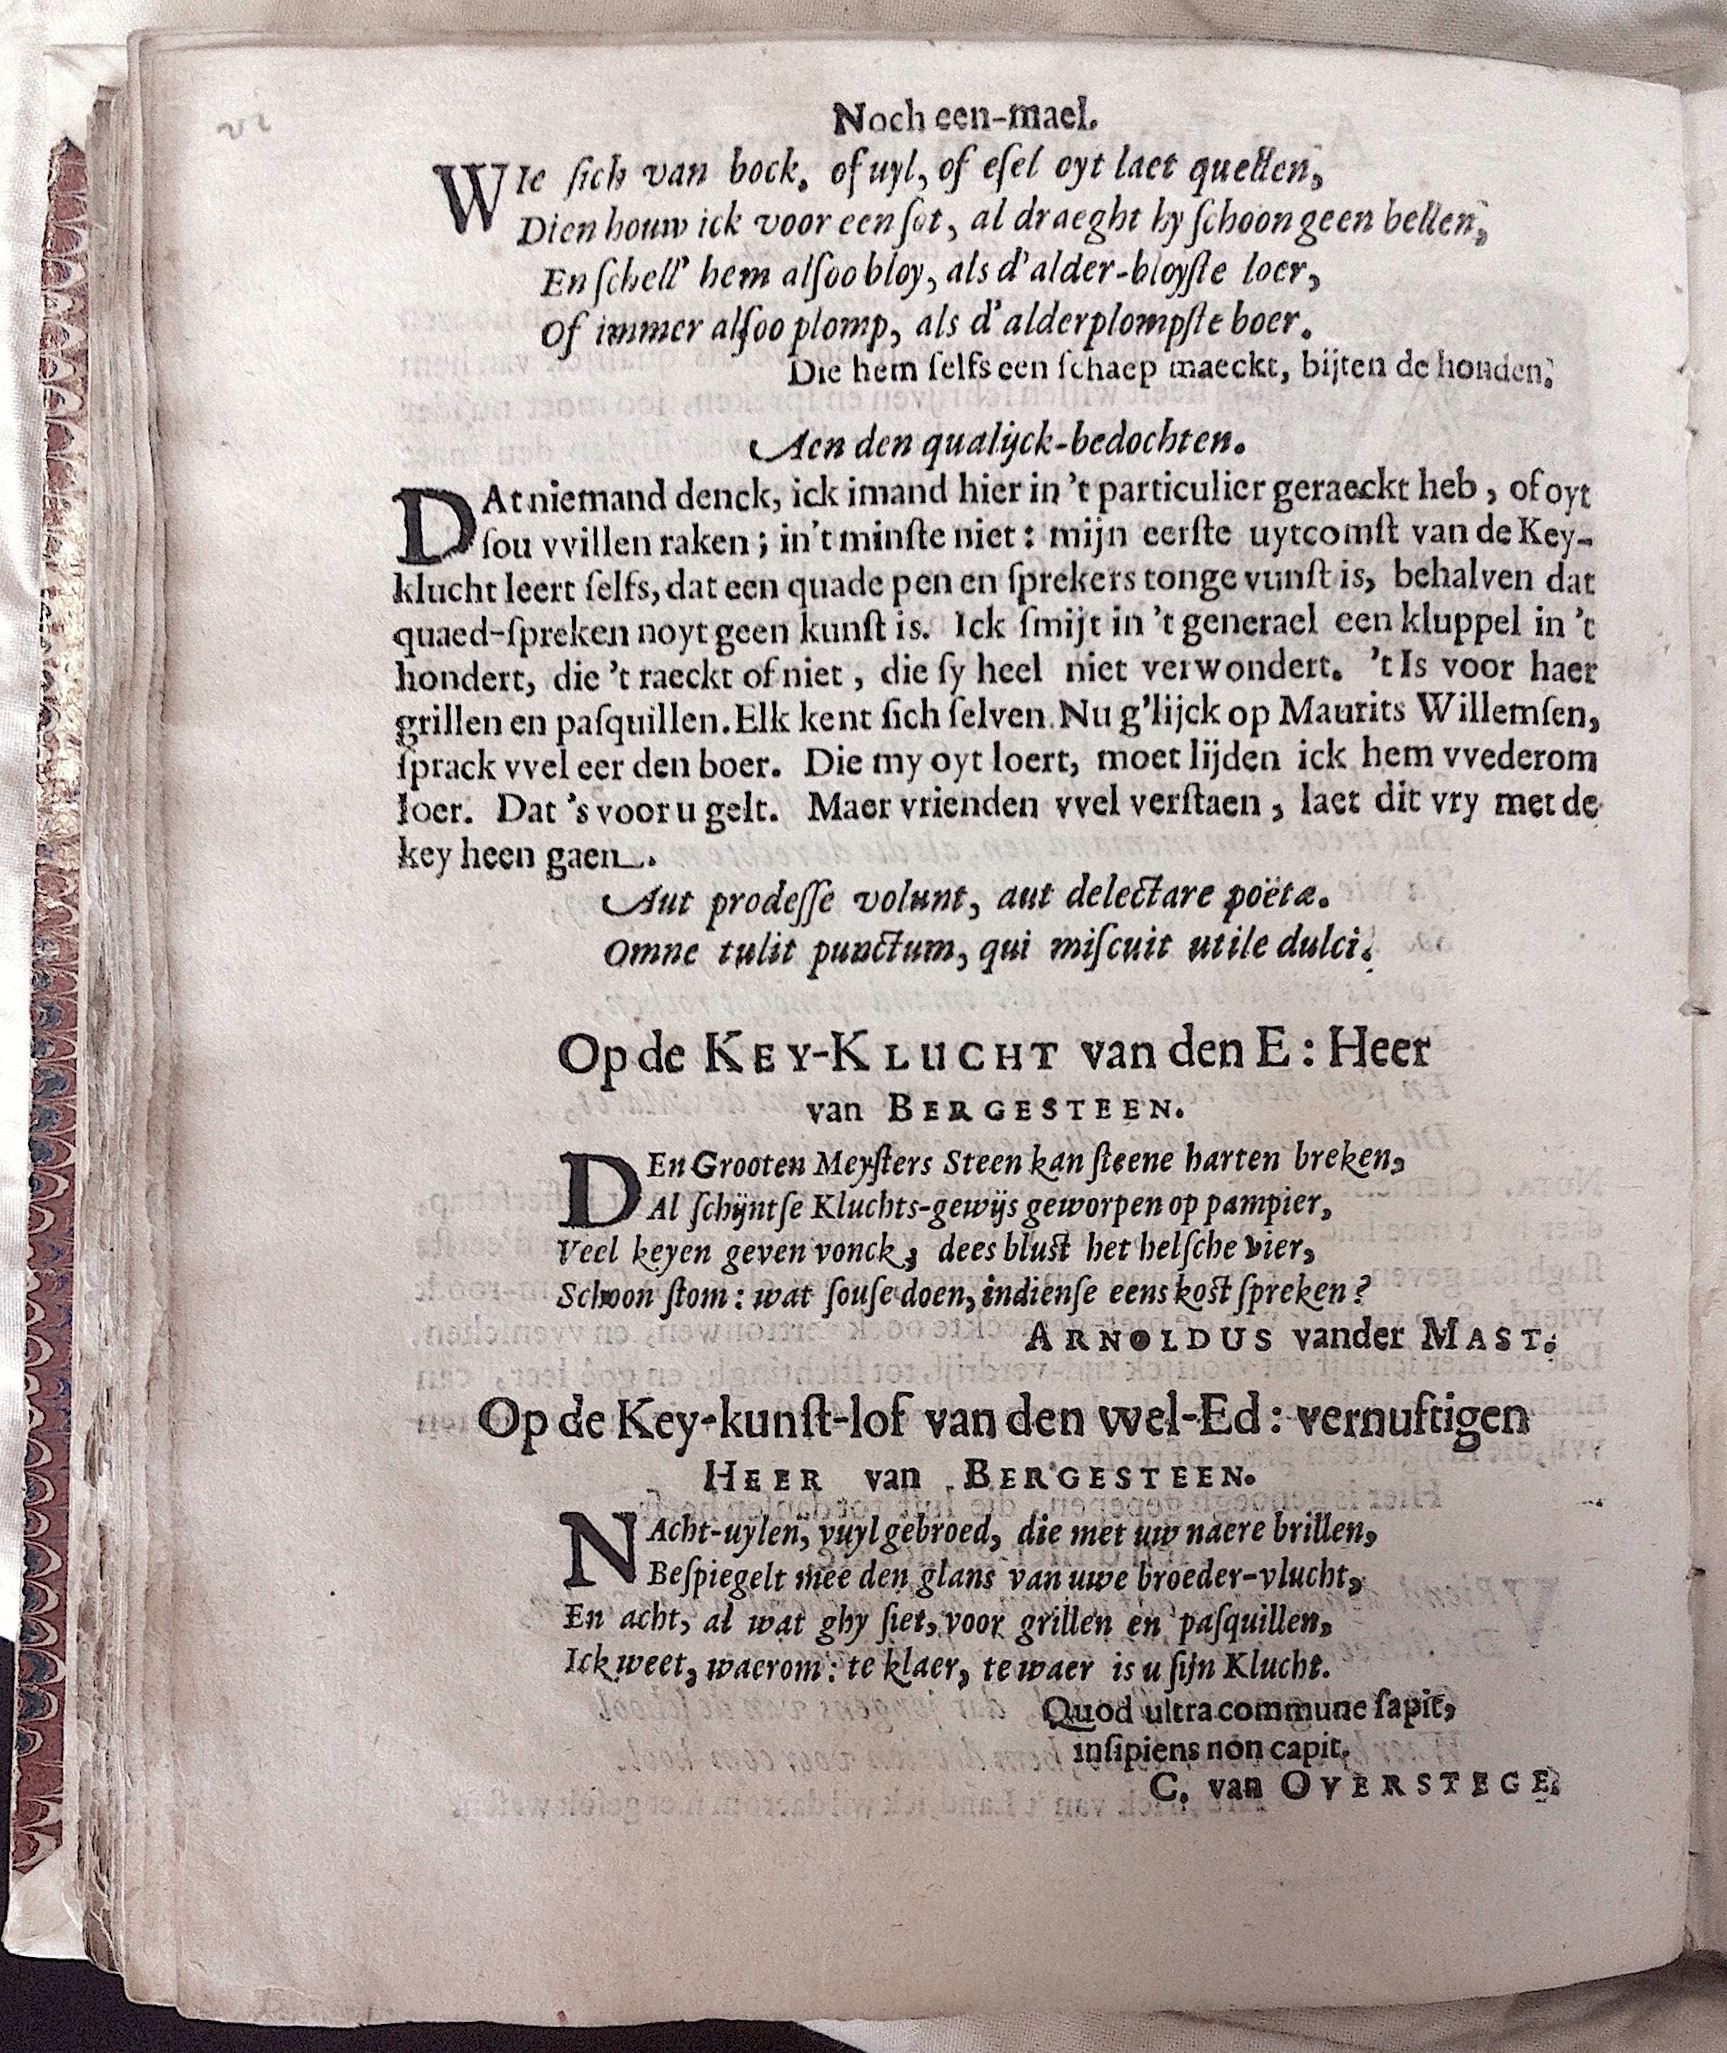 Noch een-mael.
WIe ſich van bock, of uyl, of eſel oyt laet quellen,
Dien houw ick voor een ſot, al draeght hy ſchoon geen bellen,
En ſchell' hem alſoo bloy, als d'alder-bloyſte loer,
Of immer alſoo plomp, als d'alderplompſte boer.
Die hem ſelfs een ſchaep maeckt, bijten de honden.
Aen den qualijck-bedochten.
DAt niemand denck, ick imand hier in 't particulier geraeckt heb, of oyt
ſou vvillen raken; in't minſte niet: mijn eerſte uytcomſt van de Key-
klucht leert ſelfs, dat een quade pen en ſprekers tonge vunſt is, behalven dat
quaed-ſpreken noyt geen kunſt is. Ick ſmijt in 't generael een kluppel in 't
hondert, die 't raeckt of niet, die ſy heel niet verwondert. 't Is voor haer
grillen en paſquillen. Elk kent ſich ſelven. Nu g'lijck op Maurits Willemſen,
ſprack vvel eer den boer. Die my oyt loert, moet lijden ick hem vvederom
loer. Dat 's voor u gelt. Maer vrienden vvel verſtaen, laet dit vry met de
key heen gaen.
Aut prodeſſe volunt, aut delectare poëtæ.
Omne tulit punctum, qui miſcuit utile dulci.
Op de KEY-KLUCHT van den E: Heer
van BERGESTEEN.
DEn Grooten Meyſters Steen kan ſteene harten breken,
Al ſchijntſe Kluchts-gewijs geworpen op pampier,
Veel keyen geven vonck, dees bluſt het helſche vier,
Schoon ſtom: wat ſouſe doen, indienſe eens koſt ſpreken?
ARNOLDUS vander MAST.
Op de Key-kunſt-lof van den wel-Ed: vernuftigen
HEER van BERGESTEEN.
NAcht-uylen, vuyl gebroed, die met uw naere brillen,
Beſpiegelt mee den glans van uwe broeder-vlucht,
En acht, al wat ghy ſiet, voor grillen en paſquillen,
Ick weet, waerom: te klaer, te waer is u ſijn Klucht.
Quod ultra commune ſapit,
inſipiens non capit.
C. van OVERSTEGE.